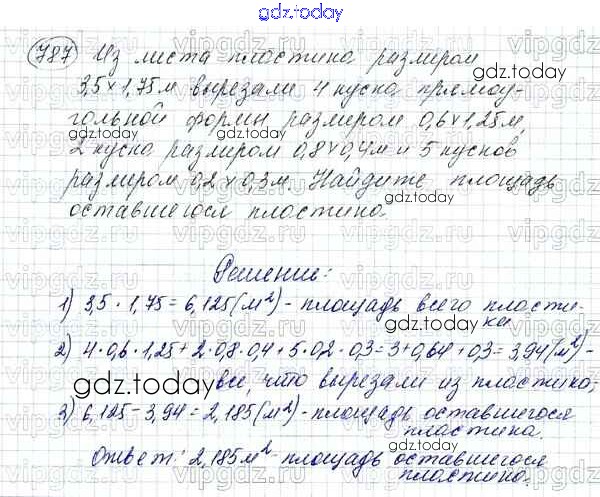 gdz.today
787 Из листа пластика размером
3,5×1,75м вырезали 4 куска прямоу-
гольной формы размером 0,6×1,25м,
2 куска размером 0,8×0,4м и 5 кусков
размером 0,2×0,3м. Найдите площадь
оставшегося пластика.
Решение:
1) 3,5 · 1,75 = 6,125(м²) - площадь всего пласти-
ка
2) 4·0,6·1,25+2·0,8·0,4+5·0,2·0,3=3+0,64+0,3=3,94(м²)-
все, что вырезали из пластика;
3) 6,125-3,94=2,185(м²)-площадь оставшегося
пластика.
Ответ: 2,185м²-площадь оставшегося
пластика.